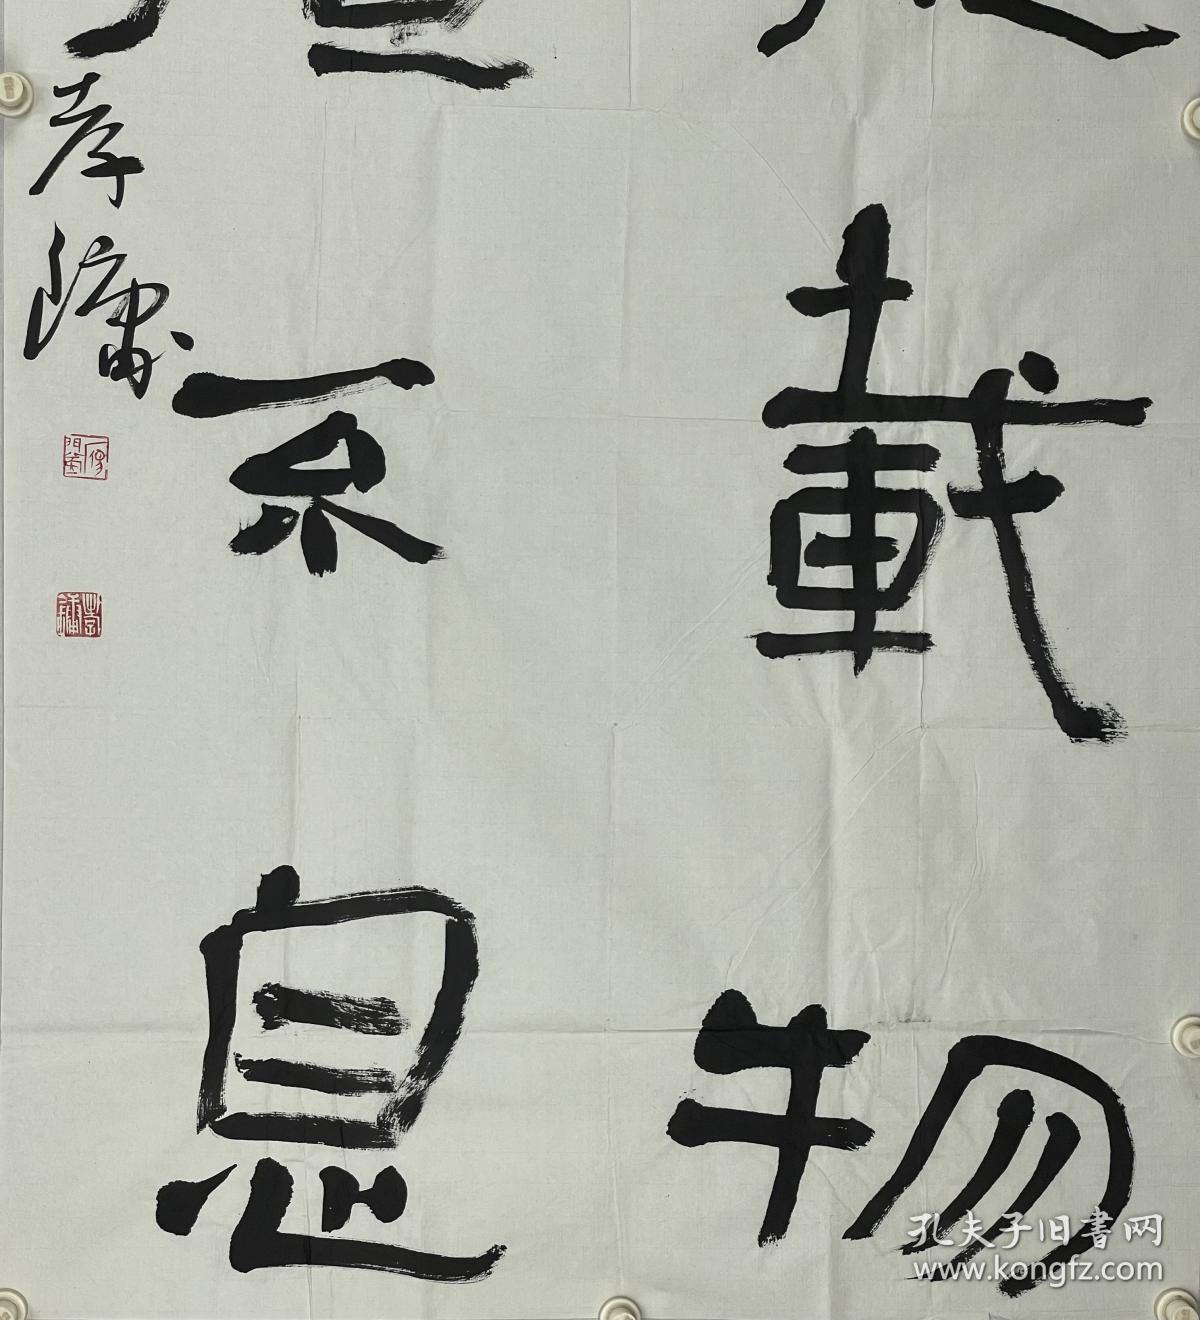 載物
不息
孝鏞
孔夫子旧書网
www.kongfz.com